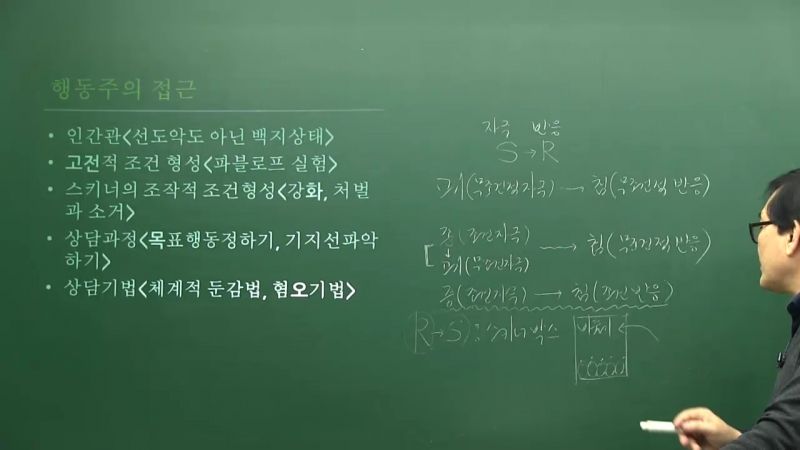 행동주의 접근
• 인간관<선도악도 아닌 백지상태>
• 고전적 조건 형성<파블로프 실험>
• 스키너의 조작적 조건형성<강화, 처벌
과 소거>
• 상담과정<목표행동정하기, 기지선파악
하기>
• 상담기법<체계적 둔감법, 혐오기법>
자극 반응
S→R
(무조건적자극) → 침(무조건적 반응)
종(조건자극)
(무조건자극) → 침(무조건적 반응)
종(조건자극) → 침(조건반응)
(R→S) : 스키너 박스